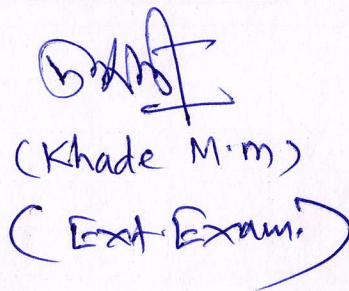 (Khade M.m)
(Ext. Exam.)